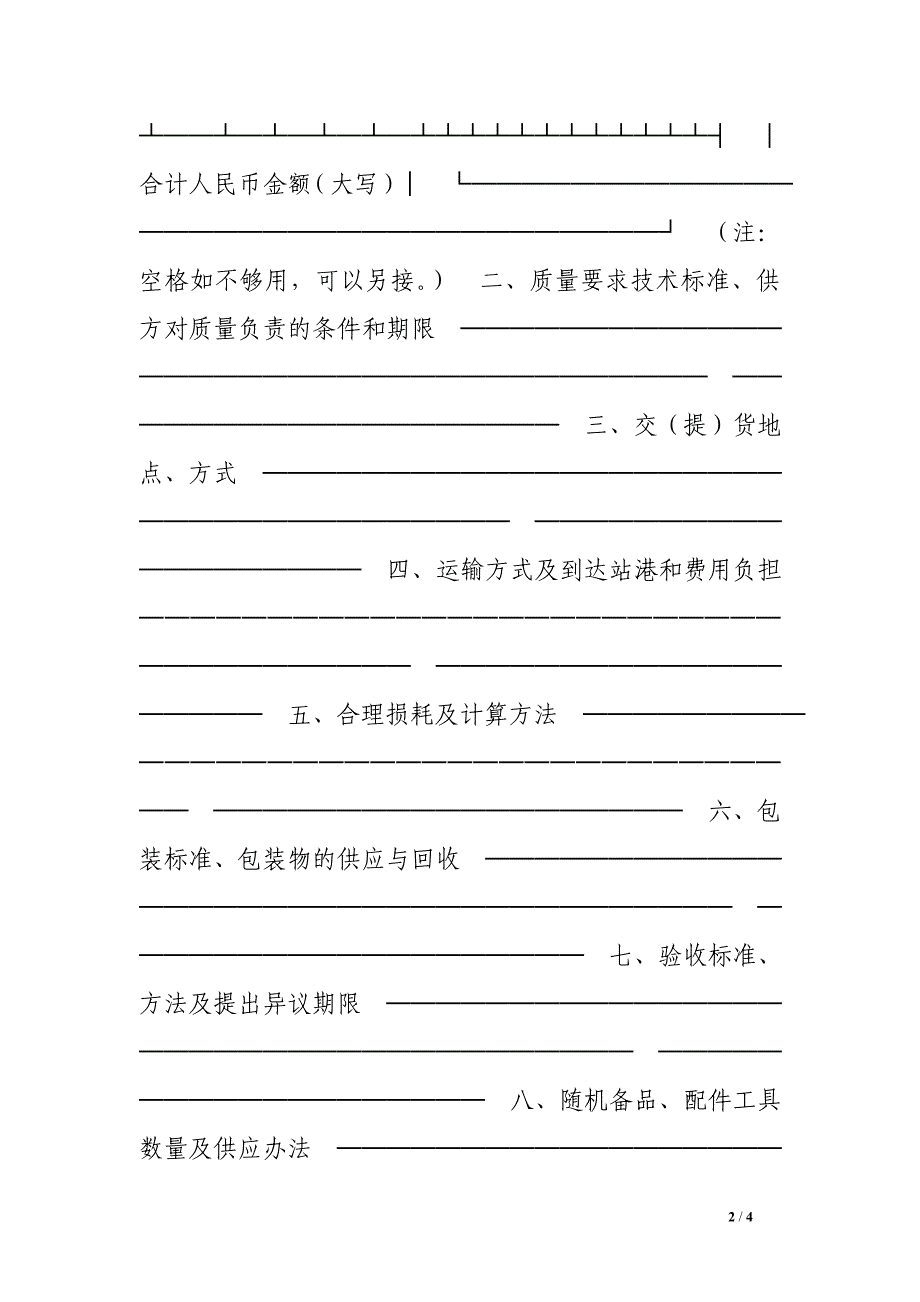 ┴───┴─┴─┴─┴─┴┴┴┴┴┴┴┴┴┴┴┴┤ │
合计人民币金额（大写）│ └─────────────
─────────────────────┘ （注：
空格如不够用，可以另接。） 二、质量要求技术标准、供
方对质量负责的条件和期限 ─────────────
─────────────────────── ──
───────────────── 三、交（提）货地
点、方式 ─────────────────────
─────────────── ──────────
───────── 四、运输方式及到达站港和费用负担
──────────────────────────
─────────── ──────────────
───── 五、合理损耗及计算方法 ─────────
──────────────────────────
── ─────────────────── 六、包
装标准、包装物的供应与回收 ────────────
──────────────────────── ─
────────────────── 七、验收标准、
方法及提出异议期限 ────────────────
──────────────────── ─────
────────────── 八、随机备品、配件工具
数量及供应办法 ──────────────────
2 / 4